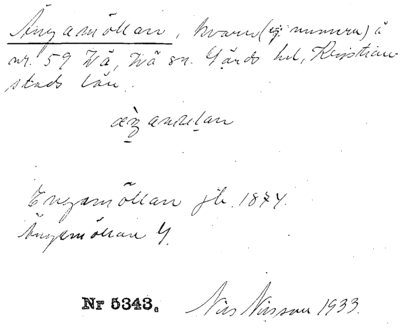 Ängamöllan, kvarn (ej numera) å
nr. 59 Vä, Vä sn. Gärds hd, Kristian
stads län.
Engamöllan jb. 1874.
Ängamöllan
Nr 5343.
Nils Nilsson 1933.